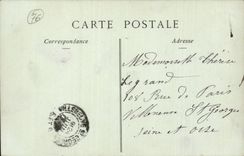 76
CARTE POSTALE
Correspondance
Adresse
Mademoiselle Thérèse
Legrand
108 Rue de Paris
Villeneuve St Georges
Seine et Oise